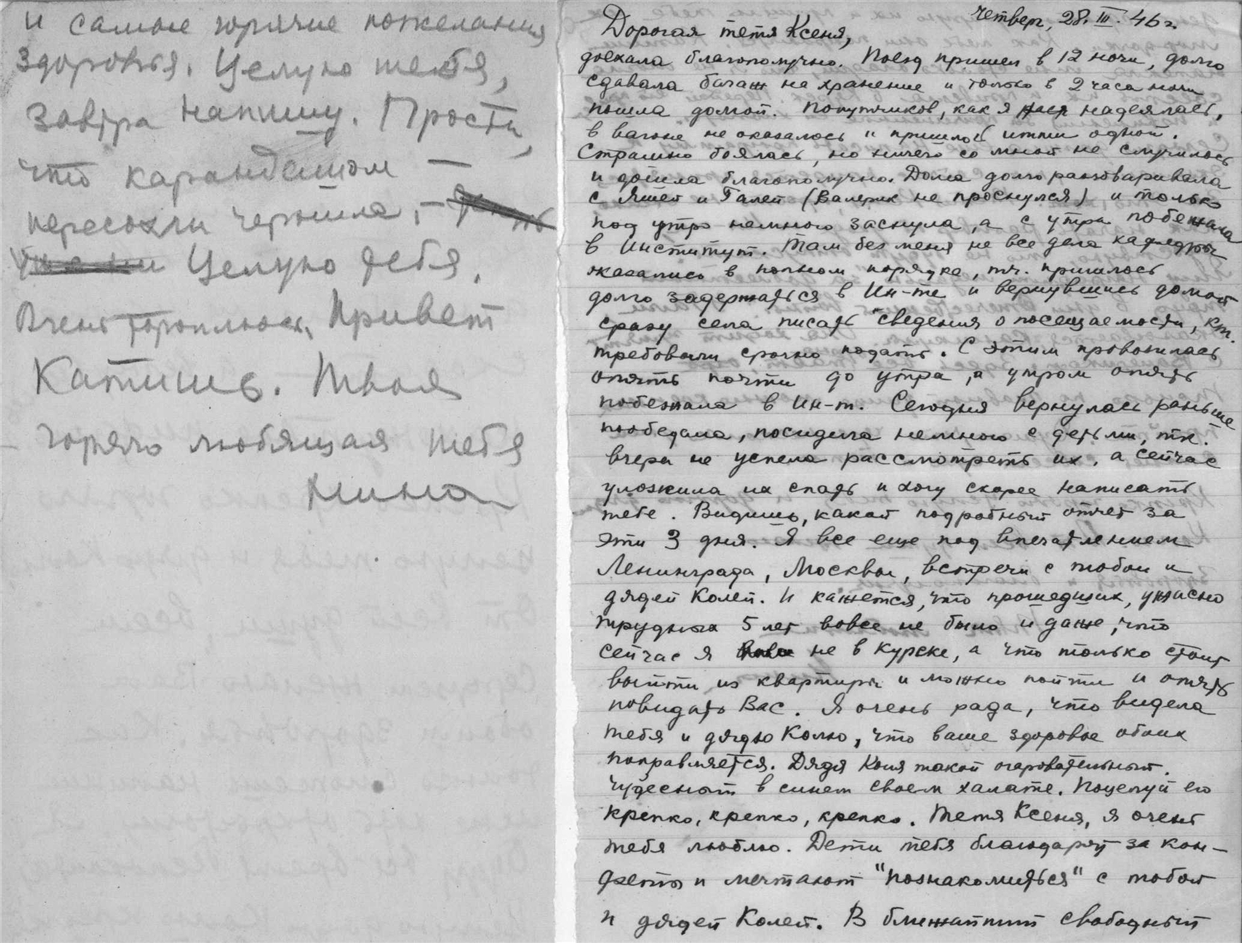 и самые горячие пожелания
здоровья. Целую тебя,
завтра напишу. Прости,
что карандашом —
пересохли чернила, —
Целую тебя.
Очень тороплюсь, Привет
Катишь. Твоя
горячо любящая тебя
Нина
Четверг, 28.III.46 г.
Дорогая тетя Ксеня,
доехала благополучно. Поезд пришел в 12 ночи, долго
сдавала багаж на хранение и только в 2 часа ночи
пошла домой. Попутчиков, как я надеялась,
в вагоне не оказалось и пришлось итти одной.
Страшно боялась, но ничего со мной не случилось
и дошла благополучно. Дома долго разговаривала
с Яшей и Галей (Валерик не проснулся) и только
под утро немного заснула, а с утра побежала
в Институт. Там без меня не все дела кафедры
оказались в полном порядке, т.ч. пришлось
долго задержаться в Ин-те и вернувшись домой
сразу села писать сведения о посещаемости, кт.
требовали срочно подать. С этим провозилась
опять почти до утра, и утром опять
побежала в Ин-т. Сегодня вернулась раньше
пообедала, посидела немного с детьми, т.к.
вчера не успела рассмотреть их, а сейчас
уложила их спать и хочу скорее написать
тебе. Видишь, какой подробный отчет за
эти 3 дня. Я все еще под впечатлением
Ленинграда, Москвы, встречи с тобой и
дядей Колей. И кажется, что прошедших, ужасно
трудных 5 лет вовсе не было и даже, что
сейчас я не в Курске, а что только стоит
выйти из квартиры и можно пойти и опять
повидать Вас. Я очень рада, что видела
тебя и дядю Колю, что ваше здоровье обоих
поправляется. Дядя Коля такой очаровательный.
Чудесный в синем своем халате. Поцелуй его
крепко, крепко, крепко. Тетя Ксеня, я очень
тебя люблю. Дети тебя благодарят за кон-
феты и мечтают "познакомиться" с тобой
и дядей Колей. В ближайший свободный